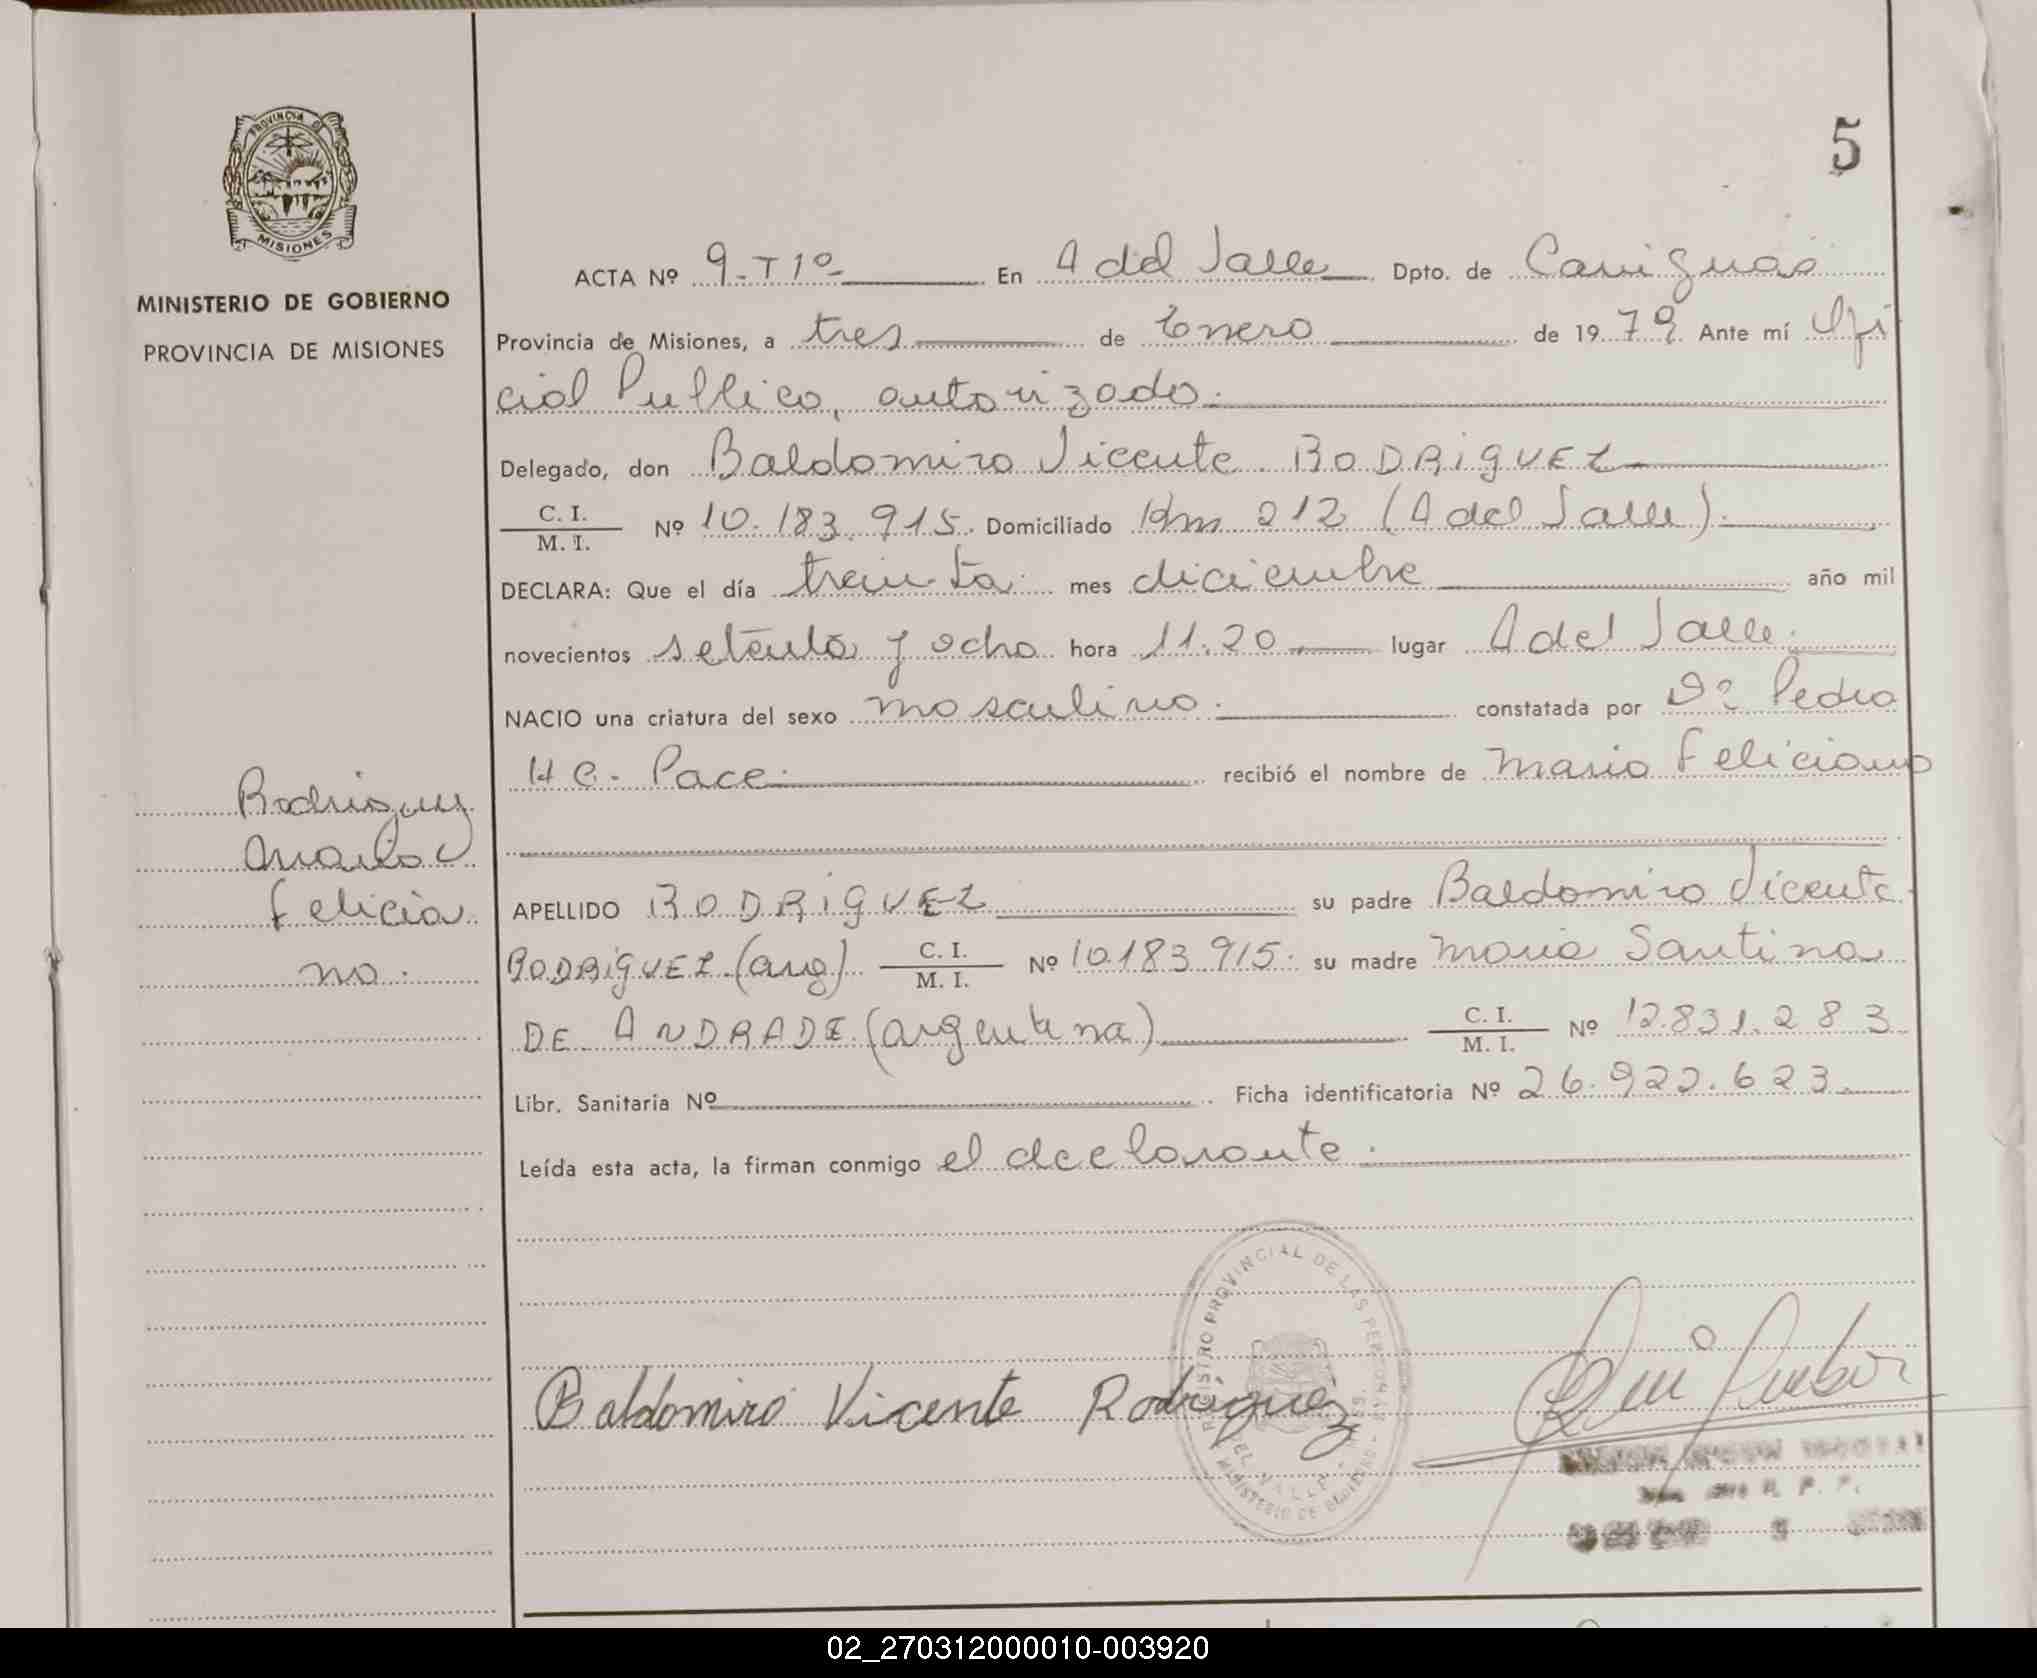 5
PROVINCIA DE
MISIONES
MINISTERIO DE GOBIERNO
PROVINCIA DE MISIONES
ACTA Nº 9-T1º- En A del Valle Dpto. de Cainguás
Provincia de Misiones, a tres de Enero de 1979. Ante mí Ofi
cial Publico, autorizado.
Delegado, don Baldomiro Vicente RODRIGUEZ
C. I. / M. I. Nº 10.183.915. Domiciliado Km 212 (A del Valle).
DECLARA: Que el día treinta. mes diciembre año mil
novecientos setenta y ocho hora 11.20 lugar A del Valle.
NACIO una criatura del sexo masculino. constatada por Dr Pedro
H C. Pace. recibió el nombre de Mario Feliciano
APELLIDO RODRIGUEZ su padre Baldomiro Vicente
RODRIGUEZ (arg) C. I. / M. I. Nº 10.183.915. su madre Maria Santina
DE ANDRADE (argentina) C. I. / M. I. Nº 12.831.283
Libr. Sanitaria Nº Ficha identificatoria Nº 26.922.623
Leída esta acta, la firman conmigo el declarante.
Rodriguez
Mario
Felicia
no.
Baldomiro Vicente Rodríguez
REGISTRO PROVINCIAL DE LAS PERSONAS
DEL VALLE
MINISTERIO DE GOBIERNO
02_270312000010-003920